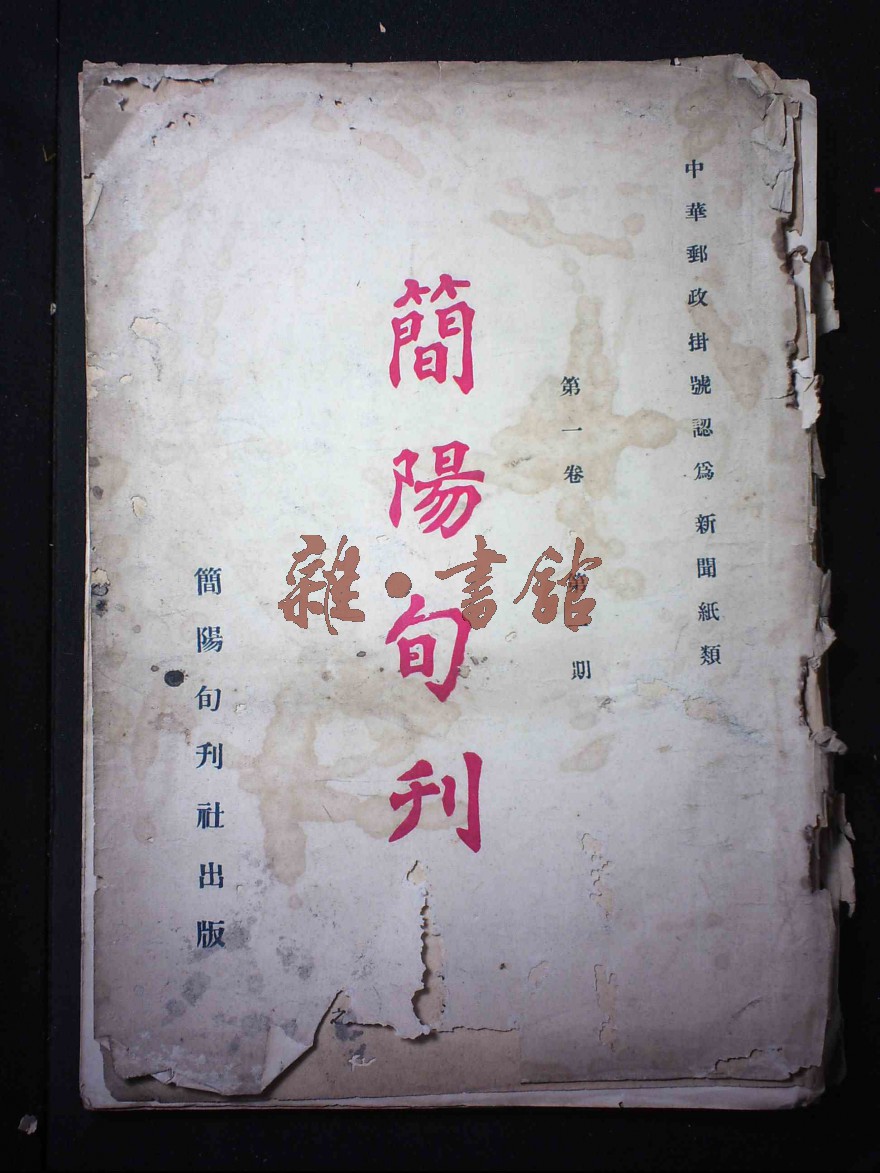 中華郵政掛號認爲新聞紙類
第一卷 第一期
簡陽旬刊
簡陽旬刊社出版
雜·書館
之